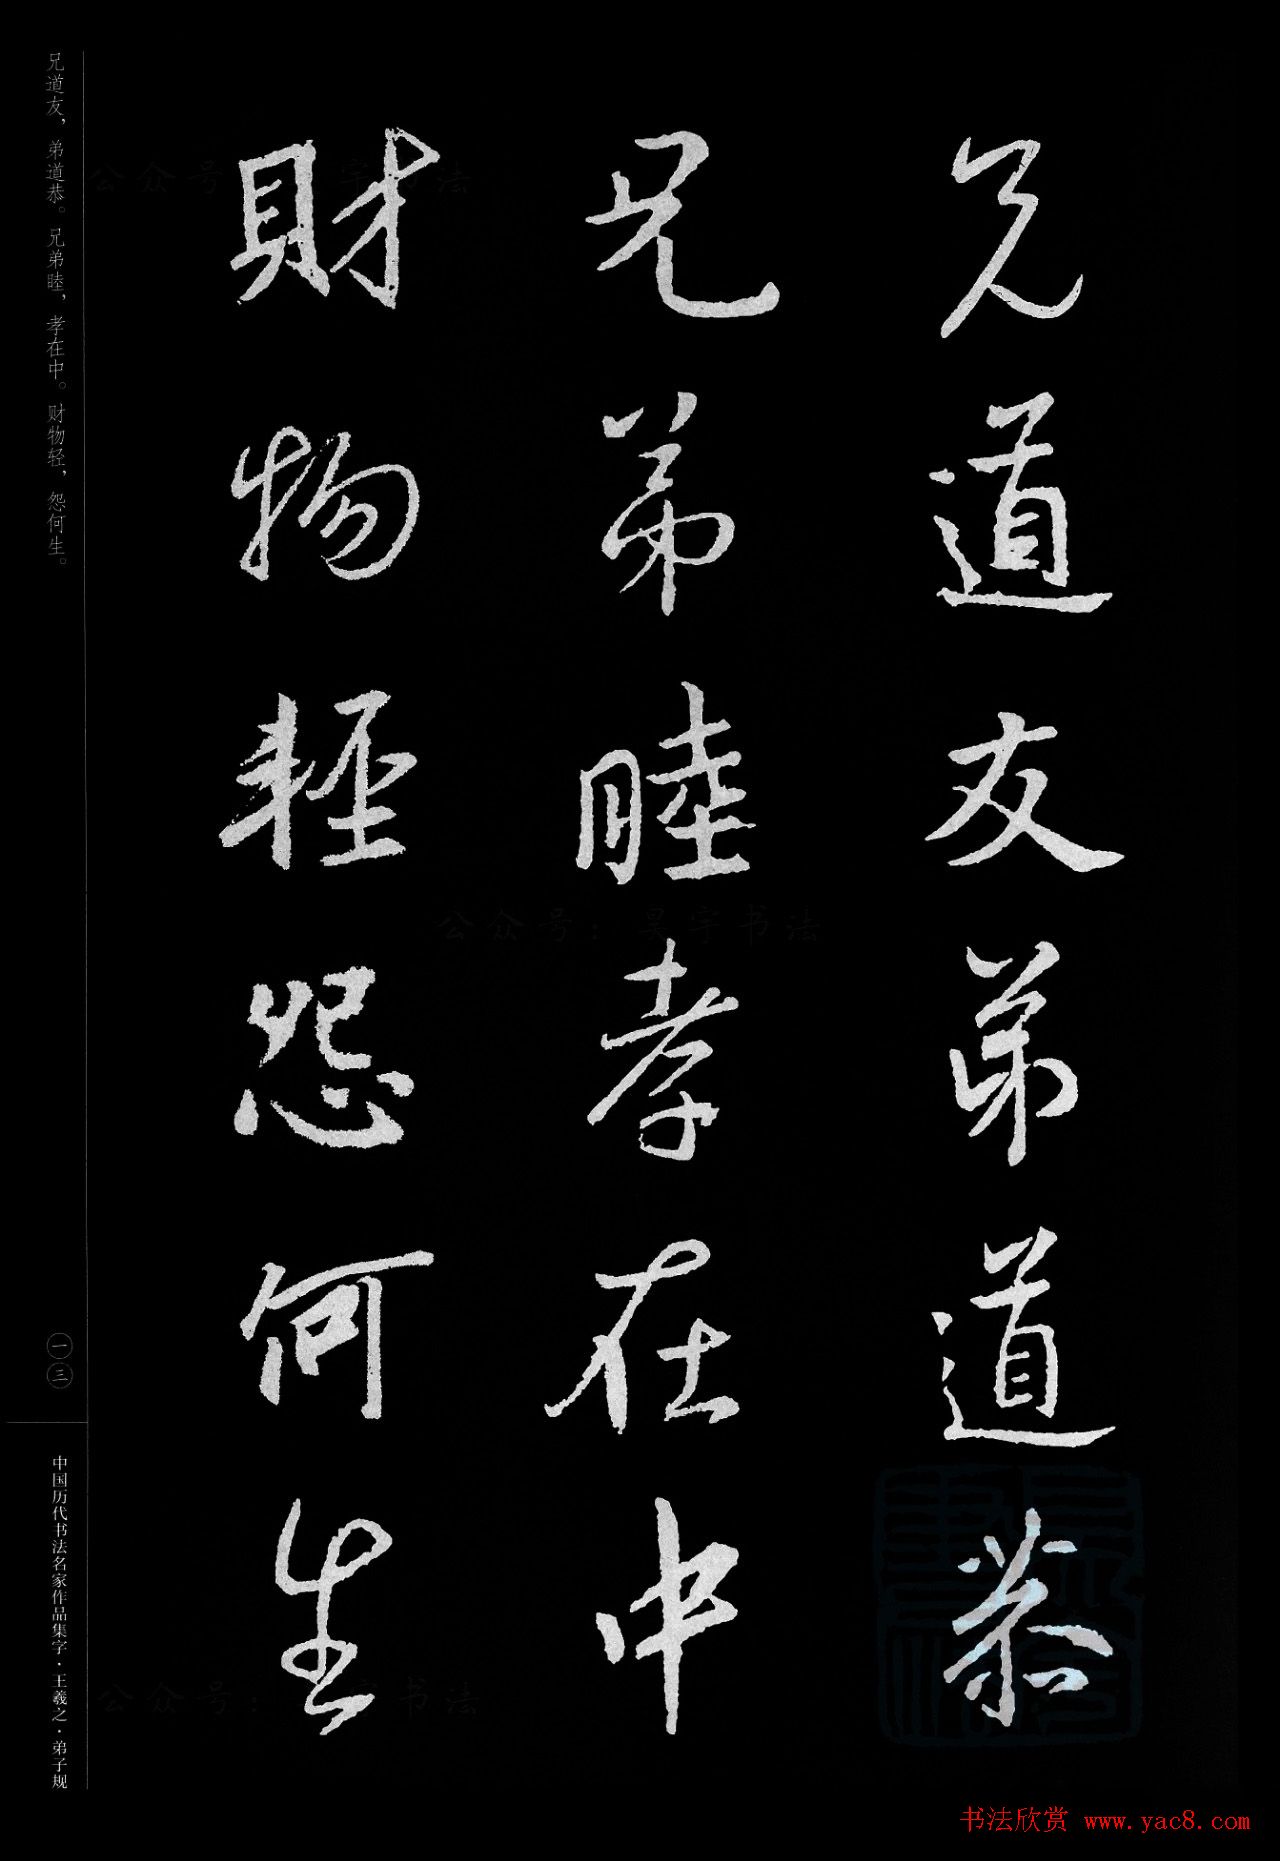 兄道友弟道恭
兄弟睦孝在中
財物輕怨何生
兄道友，弟道恭。兄弟睦，孝在中。财物轻，怨何生。
一三
中国历代书法名家作品集字·王羲之·弟子规
公众号：昊宇书法
书法欣赏 www.yac8.com